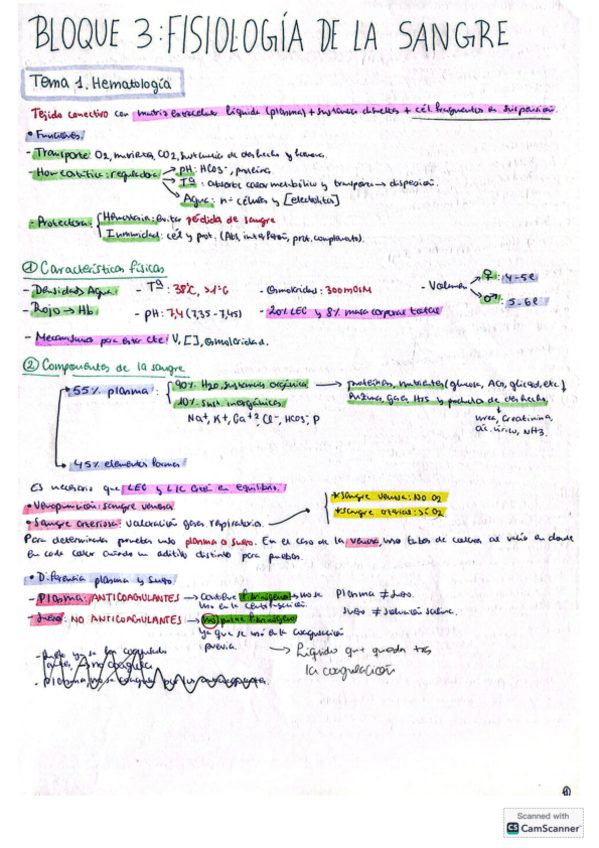 BLOQUE 3: FISIOLOGÍA DE LA SANGRE
Tema 1. Hematología
Tejido conectivo con matriz extracelular líquida (plasma) + sustancias disueltas + cél. fragmentos en suspensión.
• Funciones:
- Transporte: O2, nutrientes, CO2, sustancias de deshecho y
- Homeostática: reguladora → pH: HCO3-, proteínas.
→ Tª: absorbe calor metabólico y transporte → dispersión.
→ Agua: células y [electrolitos]
- Protectora: Hemostasia: evitar pérdida de sangre.
Inmunidad: cél y prot. (Abs, interferón, prot. complemento).
① Características físicas
- Densidad > Agua - Tª: 38°C, >1°C - Osmolaridad: 300mOsm - Volumen → ♀: 4-5l
→ ♂: 5-6l
- Rojo → Hb - pH: 7,4 (7,35-7,45) - 20% LEC y 8% masa corporal total
- Mecanismos para estar cte: V, [ ], osmolaridad.
② Componentes de la sangre
55% plasma: 90% H2O, sustancias orgánicas → proteínas, nutrientes (glucosa, Aas, glicerol, etc.)
10% Sust. inorgánicas gases, y productos de deshecho.
Na+, K+, Ca+2, Cl-, HCO3-, P urea, creatinina,
ác. úrico, NH3.
45% elementos formes
Es necesario que LEC y LIC estén en equilibrio.
• Venopunción: sangre venosa *Sangre venosa: NO O2
• Sangre arterial: valoración gases respiratoria. *sangre arterial: SÍ O2
Para determinadas pruebas uso plasma o suero. En el caso de la venosa, uso tubos de colores al vacío en donde
en cada color añado un aditivo distinto para pruebas.
• Diferencia plasma y suero
- Plasma: ANTICOAGULANTES → Contiene fibrinógeno → no se Plasma ≠ suero.
usó en la Suero ≠ solución salina.
- Suero: NO ANTICOAGULANTES → No posee fibrinógeno
ya que se usó en la coagulación
previa. → Líquido que queda tras
la coagulación
①
Scanned with
CS CamScanner